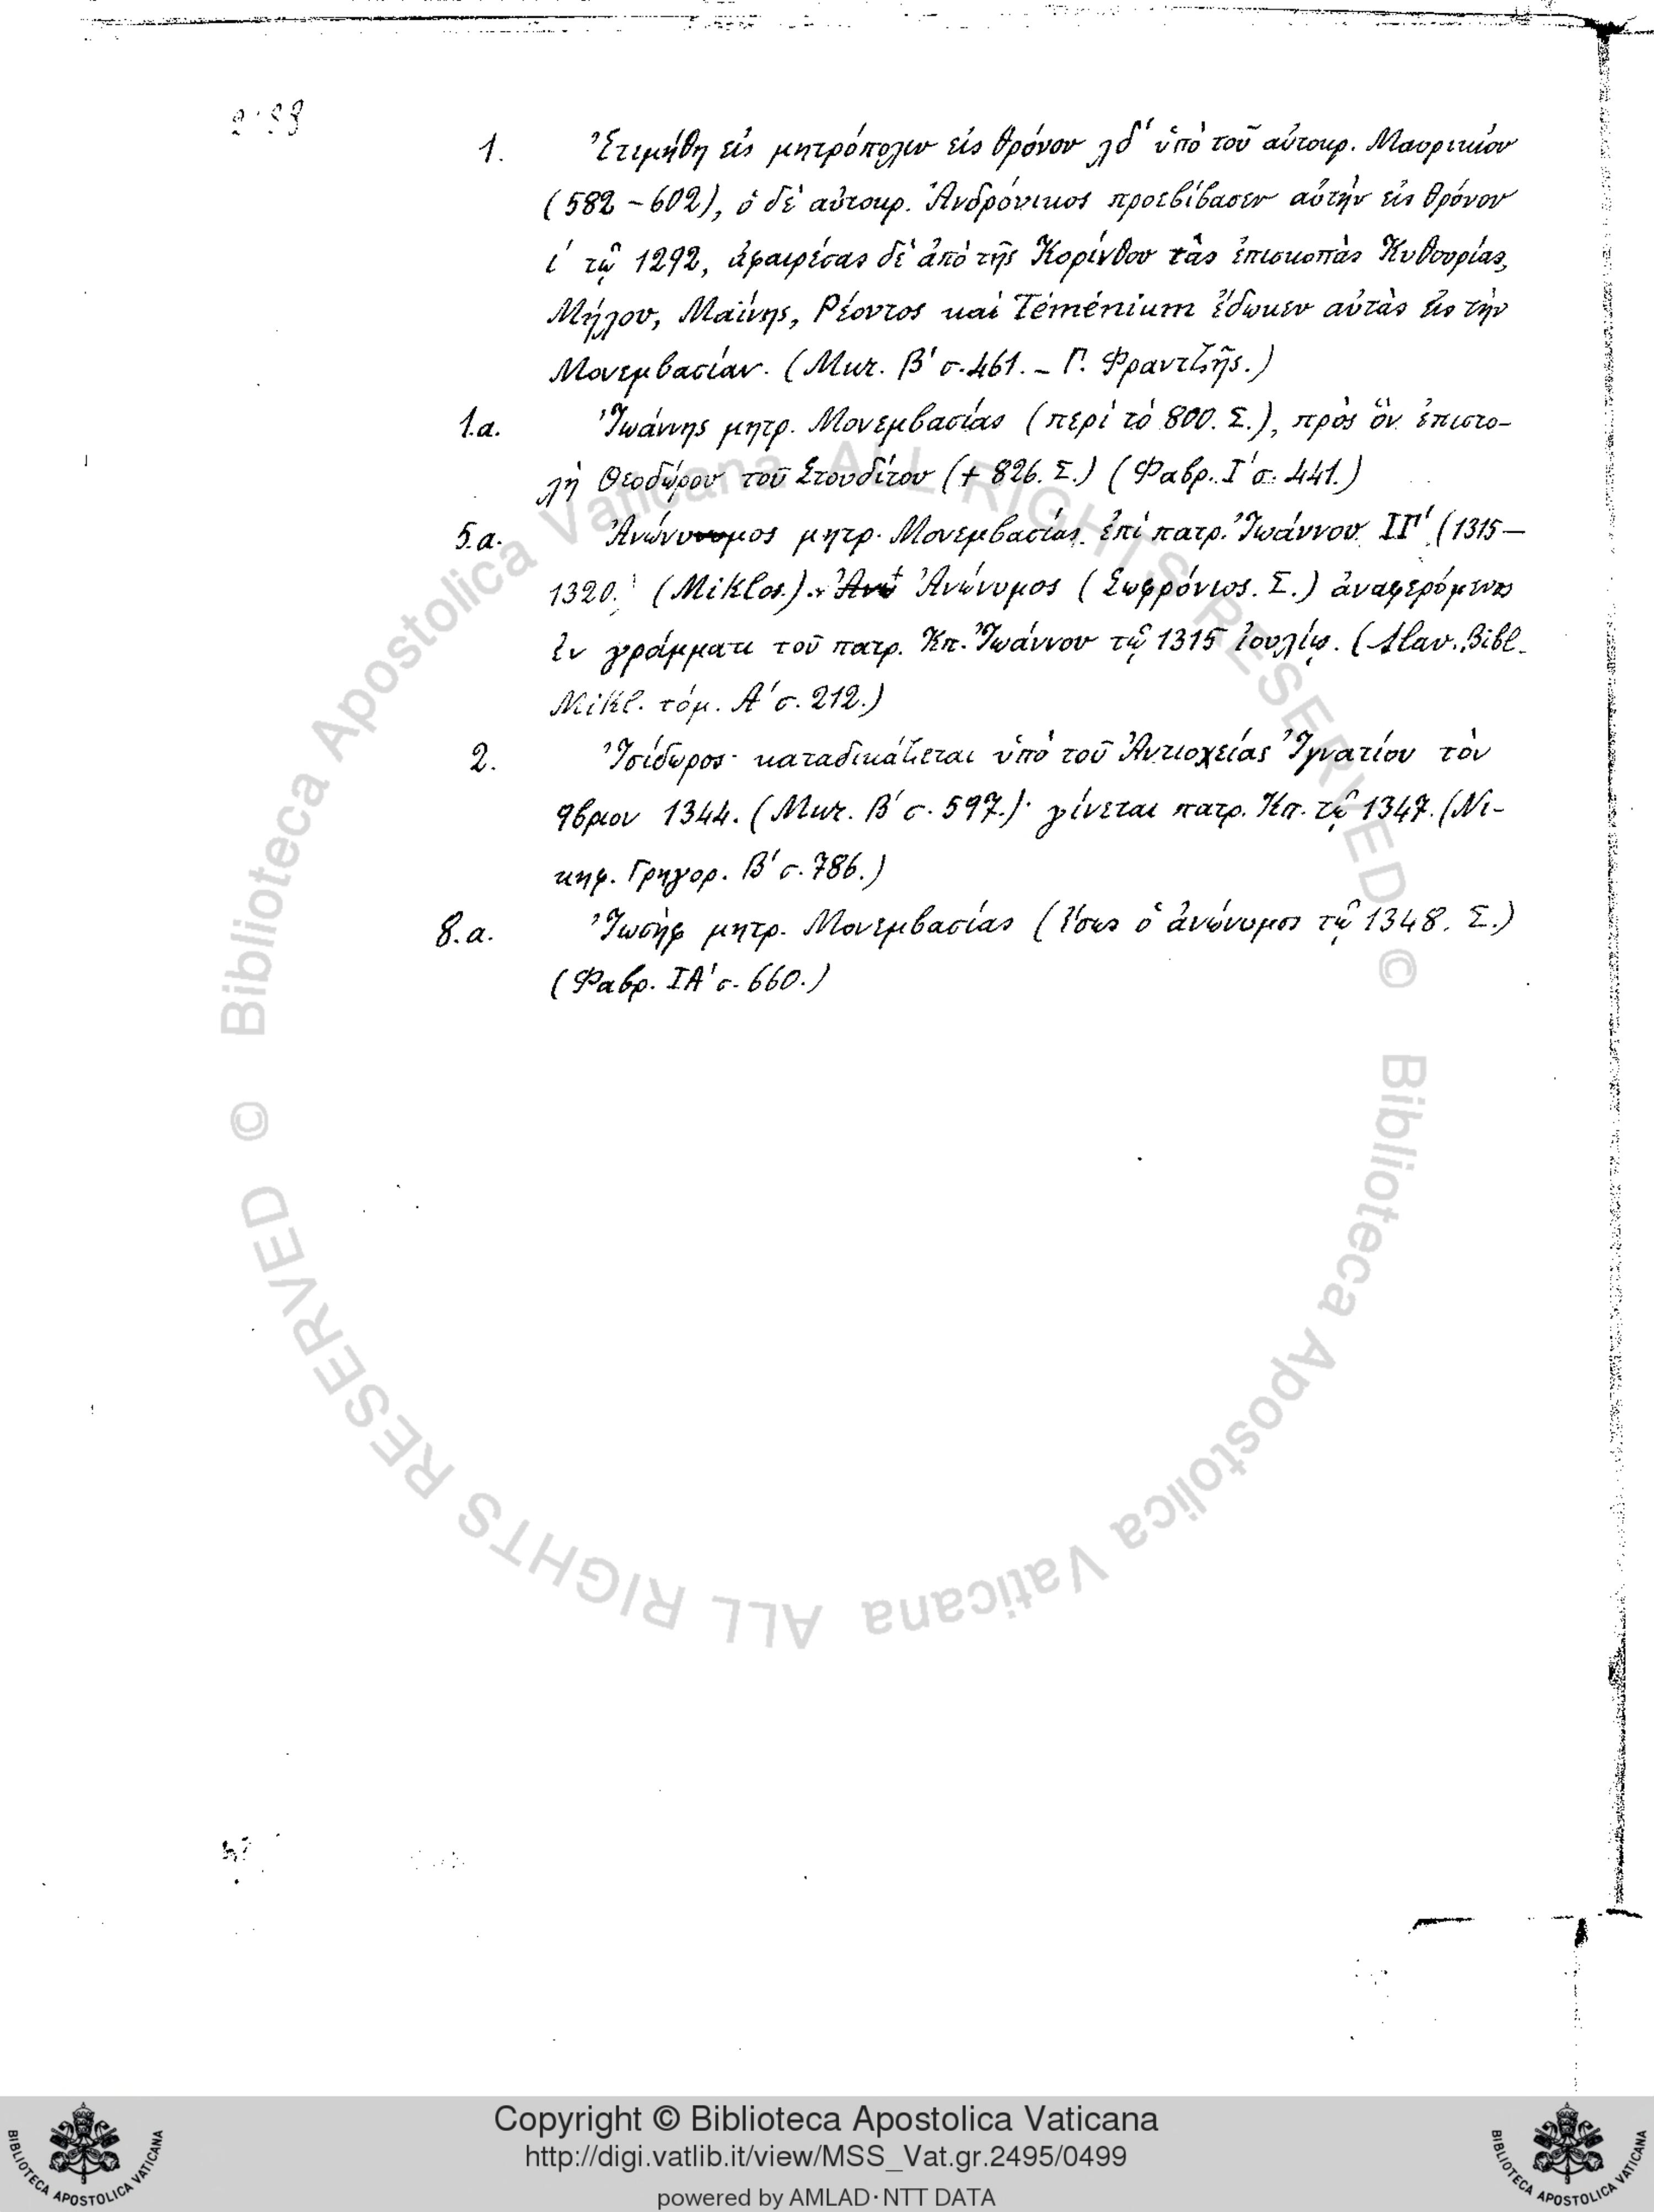 1. Ἐτιμήθη εἰς μητρόπολιν εἰς θρόνον λδ΄ ὑπὸ τοῦ αὐτοκρ. Μαυρικίου
(582-602), ὁ δὲ αὐτοκρ. Ἀνδρόνικος προεβίβασεν αὐτὴν εἰς θρόνον
ί τῷ 1292, ἀφαιρέσας δὲ ἀπὸ τῆς Κορίνθου τὰς ἐπισκοπὰς Κυθουρίας,
Μήλου, Μαίνης, Ρέοντος καὶ Téménium ἔδωκεν αὐτὰς εἰς τὴν
Μονεμβασίαν. (Μικ. Β΄ σ. 461. - Γ. Φραντζῆς.)
1.α. Ἰωάννης μητρ. Μονεμβασίας (περὶ τὸ 800. Σ.), πρὸς ὃν ἐπιστο-
λὴ Θεοδώρου τοῦ Στουδίτου (+ 826. Σ.) (Φαβρ. Ι΄ σ. 441.)
5.α. Ἀνώνυμος μητρ. Μονεμβασίας ἐπὶ πατρ. Ἰωάννου ΙΓ΄ (1315-
1320. (Miklos.). Ἀνώνυμος (Σωφρόνιος. Σ.) ἀναφερόμενος
ἐν γράμματι τοῦ πατρ. Κπ. Ἰωάννου τῷ 1315 ἰουλίῳ. (Slav. Bibl.
Mikl. τόμ. Α΄ σ. 212.)
2. Ἰσίδωρος· καταδικάζεται ὑπὸ τοῦ Ἀντιοχείας Ἰγνατίου τὸν
9βριον 1344. (Μικ. Β΄ σ. 597.)· γίνεται πατρ. Κπ. τῷ 1347. (Νι-
κηφ. Γρηγορ. Β΄ σ. 786.)
8.α. Ἰωσὴφ μητρ. Μονεμβασίας (ἴσως ὁ ἀνώνυμος τῷ 1348. Σ.)
(Φαβρ. ΙΑ΄ σ. 660.)
© Biblioteca Apostolica Vaticana ALL RIGHTS RESERVED
© Biblioteca Apostolica Vaticana ALL RIGHTS RESERVED
Copyright © Biblioteca Apostolica Vaticana
http://digi.vatlib.it/view/MSS_Vat.gr.2495/0499
powered by AMLAD·NTT DATA
BIBLIOTECA APOSTOLICA VATICANA
BIBLIOTECA APOSTOLICA VATICANA